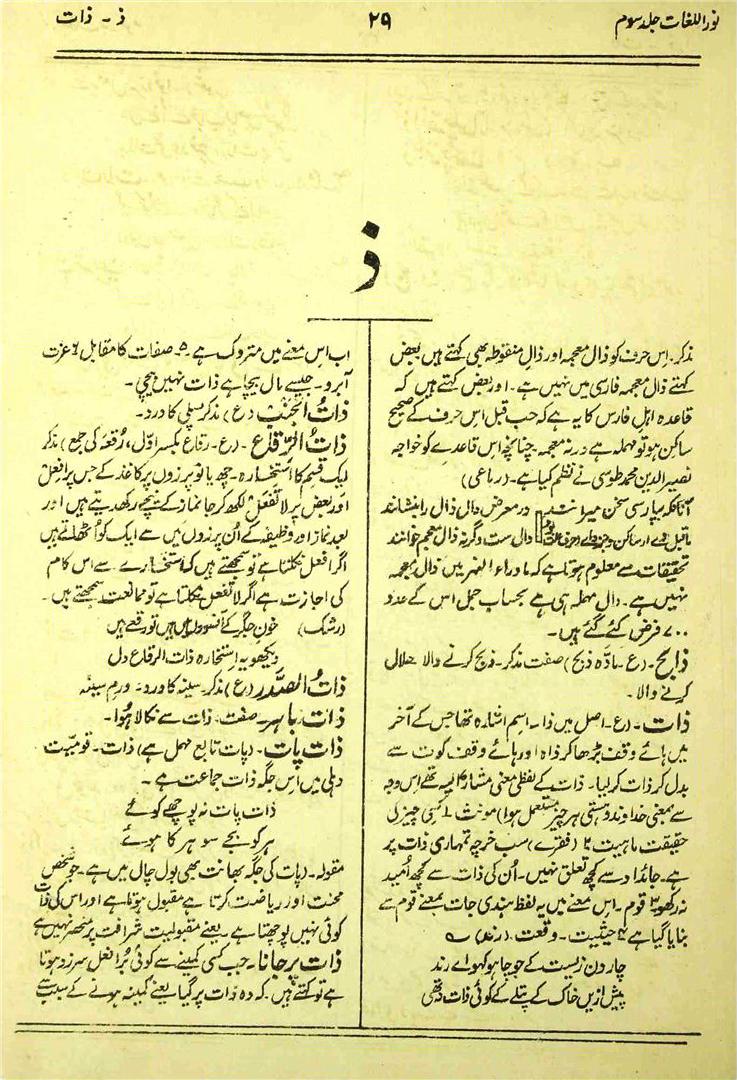 نوراللغات جلد سوم
۲۹
ذ ۔ ذات
ذ
مذکر۔ اس حرف کو ذال معجمہ اور ذالِ منقوطہ بھی کہتے ہیں بعض
کہتے ذال معجمہ فارسی میں نہیں ہے۔ اور بعض کہتے ہیں کہ
قاعدہ اہلِ فارس کا یہ ہے کہ جب قبل اس حرف کے صحیح
ساکن ہو تو مہملہ ہے ورنہ معجمہ چنانچہ اس قاعدے کو خواجہ
نصیر الدین محمد طوسی نے نظم کیا ہے۔ (رباعی)
آنانکہ بپارسی سخن میرانند در معرض دال ذال را بنشانند
ماقبل وے ار ساکن جز وای بود دال ست وگرنہ ذال معجم خوانند
تحقیقات سے معلوم ہوتا ہے کہ ماوراء النہر میں ذال معجمہ
نہیں ہے۔ دال مہملہ ہی ہے بحساب جمل اس کے عدد
۷۰۰ فرض کئے گئے ہیں۔
ذابح۔ (ع۔ مادّہ ذبح) صفت مذکر۔ ذبح کرنے والا حلال
کرنے والا۔
ذات۔ (ع۔ اصل میں ذا۔ اسم اشارہ تھا جس کے آخر
میں ہائے وقف بڑھا کر ذاہ اور ہائے وقف کو ت سے
بدل کر ذات کر لیا۔ ذات کے لفظی معنی مشارٌ الیہ تھے اس وجہ
سے بمعنی خداوند و ہستی ہر چیز مستعمل ہوا) مونث ۱ کسی چیز کی
حقیقت ماہیت ۲ (فقرے) سب خرچہ تمہاری ذات پر
ہے۔ جائداد سے کچھ تعلق نہیں۔ اُن کی ذات سے کچھ اُمید
نہ رکھو ۳ قوم۔ اس معنے میں یہ لفظ ہندی جات بمعنے قوم سے
بنایا گیا ہے ۴ حیثیت۔ وقعت۔ (رند) ؎
چار دن زیست کے جو چاہو کہو اے رند
پیش ازیں خاک کے پتلے کے کوئی ذات نہ تھی
اب اس معنے میں متروک ہے۔ ۵ صفات کا مقابل ۶ عزت
آبرو۔ جیسے مال بیچا ہے ذات نہیں بیچی۔
ذاتُ الجَنْب (ع) مذکر پسلی کا درد۔
ذاتُ الرِّقاع۔ (ع۔ رقاع بکسر اوّل، رُقعہ کی جمع) مذکر
ایک قسم کا استخارہ۔ چھ یا نو پرزوں پر کاغذ کے جس پر افعل
اور بعض پر لا تفعل لکھ کر جا نماز کے نیچے رکھ دیتے ہیں اور
بعد نماز اور وظیفہ کے اُن پرزوں میں سے ایک کو اُٹھاتے ہیں
اگر افعل نکلتا ہے تو سمجھتے ہیں کہ استخارے سے اس کام
کی اجازت ہے اگر لا تفعل نکلتا ہے تو ممانعت سمجھتے ہیں۔
(رشک) خون جگر کے آنسوؤں میں ہیں تو رقعے ہیں
دیکھو یہ استخارہ ذات الرقاع دل
ذاتُ الصَّدْر (ع) مذکر۔ سینہ کا درد۔ ورم سینہ
ذات باہر۔ صفت۔ ذات سے نکالا ہُوا۔
ذات پات۔ (پات تابع مہمل ہے) ذات۔ قومیت
دہلی میں اس جگہ ذات جماعت ہے۔
ذات پات نہ پوچھے کوئے
ہر کو بجے سو ہر کا ہوئے
مقولہ۔ (پات کی جگہ بھانت بھی بول چال میں ہے۔ جو شخص
محنت اور ریاضت کرتا ہے مقبول ہوتا ہے اور اس کی ذات
کوئی نہیں پوچھتا ہے۔ یعنے مقبولیت شرافت پر منحصر نہیں ہے
ذات پر جانا۔ جب کسی کمینے سے کوئی بُرا فعل سرزد ہوتا
ہے تو کہتے ہیں۔ کہ وہ ذات پر گیا یعنے کمینہ ہونے کے سبب سے